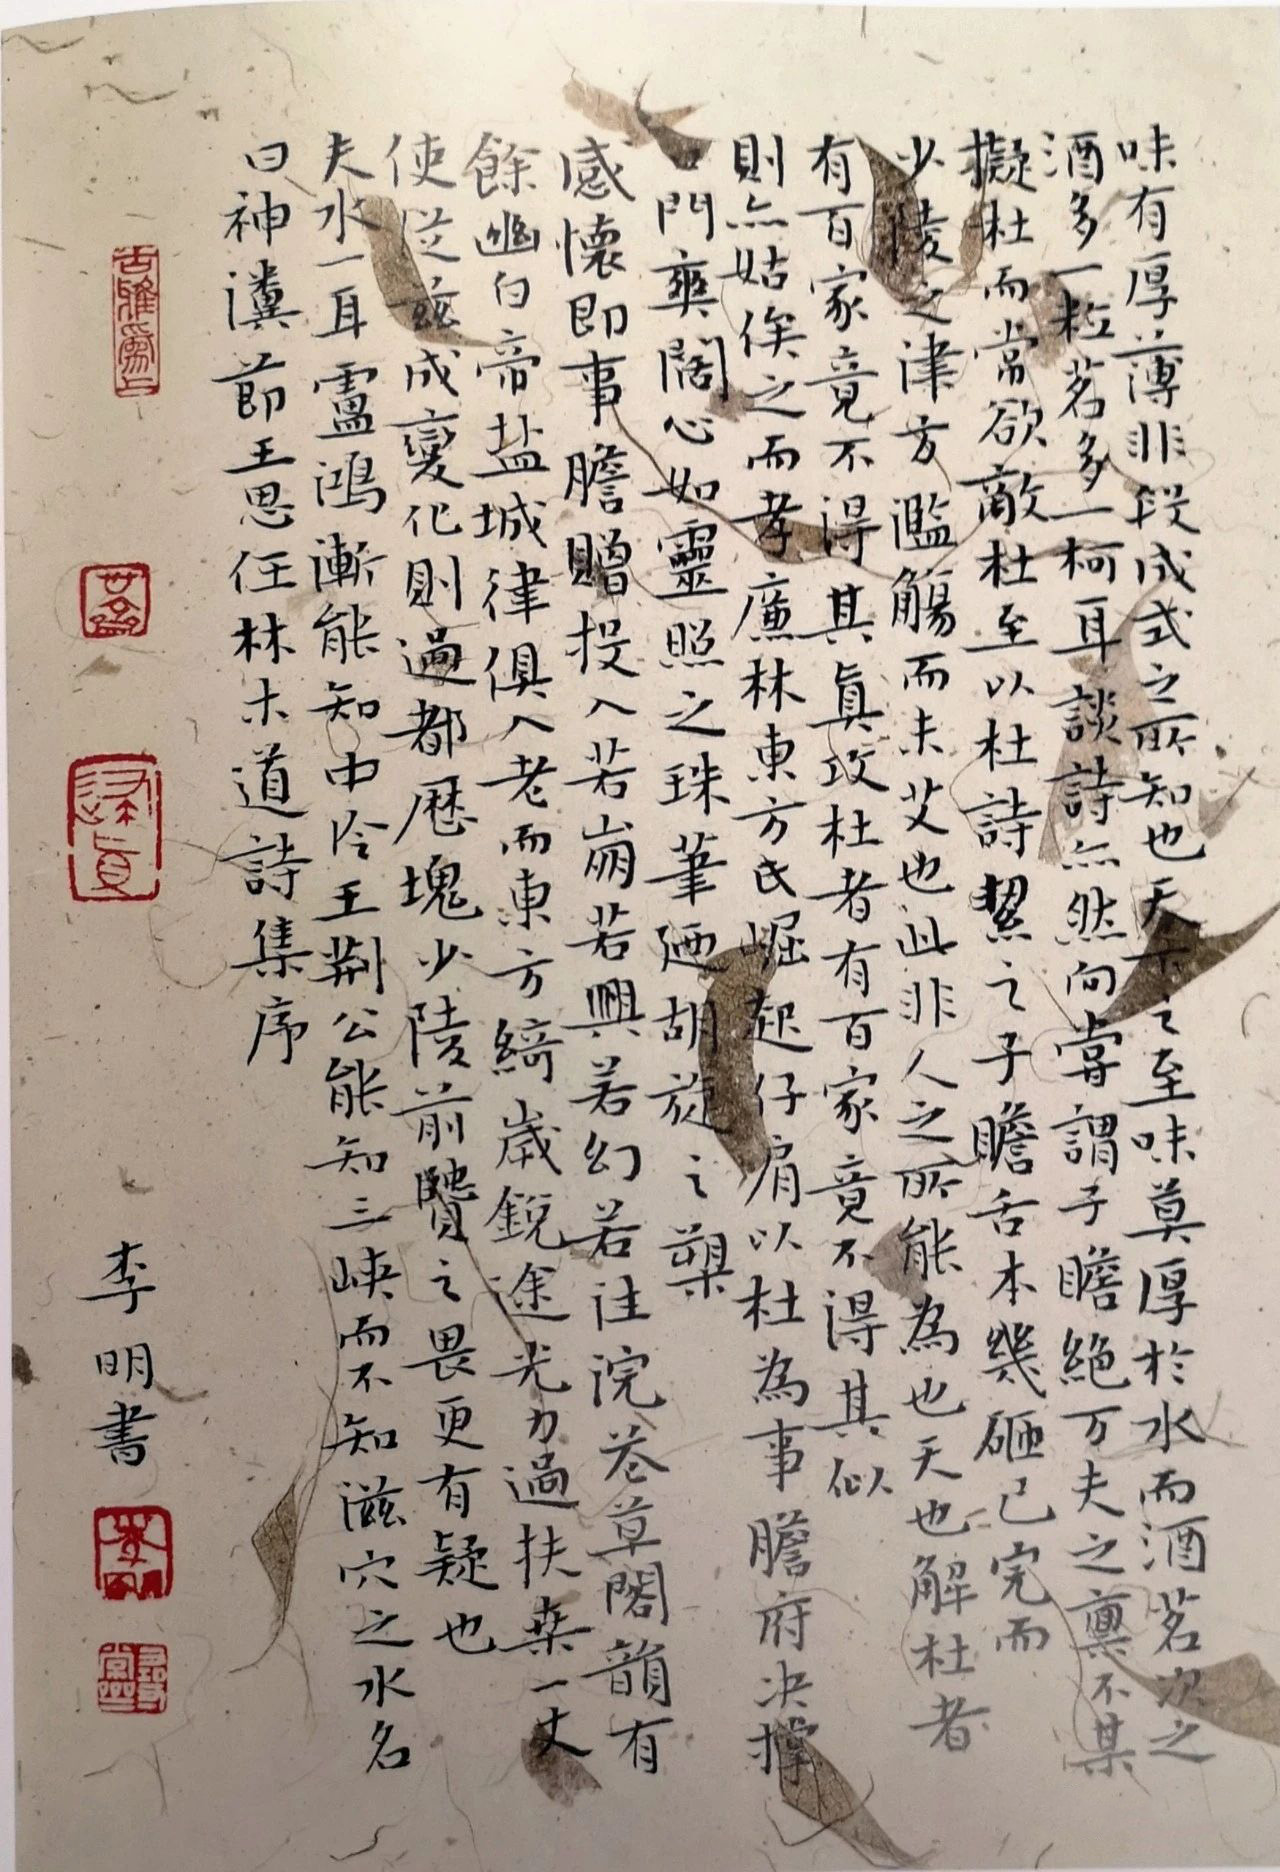 味有厚薄非段成式之所知也天下之至味莫厚於水而酒茗次之
酒多一粒茗多一柯耳談詩亦然向嘗謂子瞻絕万夫之禀不某
擬杜而常欲敵杜至以杜詩絜之子瞻舌本幾砸已完而
少陵之津方濫觴而未艾也此非人之所能為也天也解杜者
有百家竟不得其真攻杜者有百家竟不得其似
則亦姑俟之而孝廉林東方氏崛起仔肩以杜為事膽府决撑
門爽闊心如靈照之珠筆迺胡旋之槊
感懷即事贍贈投入若崩若興若幻若詿浣花草閣韻有
餘幽白帝盐城律俱入老而東方綺歲銳途光力過扶桒一丈
使從茲成變化則過都歷塊少陵前贒之畏更有疑也
夫水一耳盧鴻漸能知中泠王荆公能知三峽而不知滋穴之水名
曰神瀵節王思任林木道詩集序
李明書